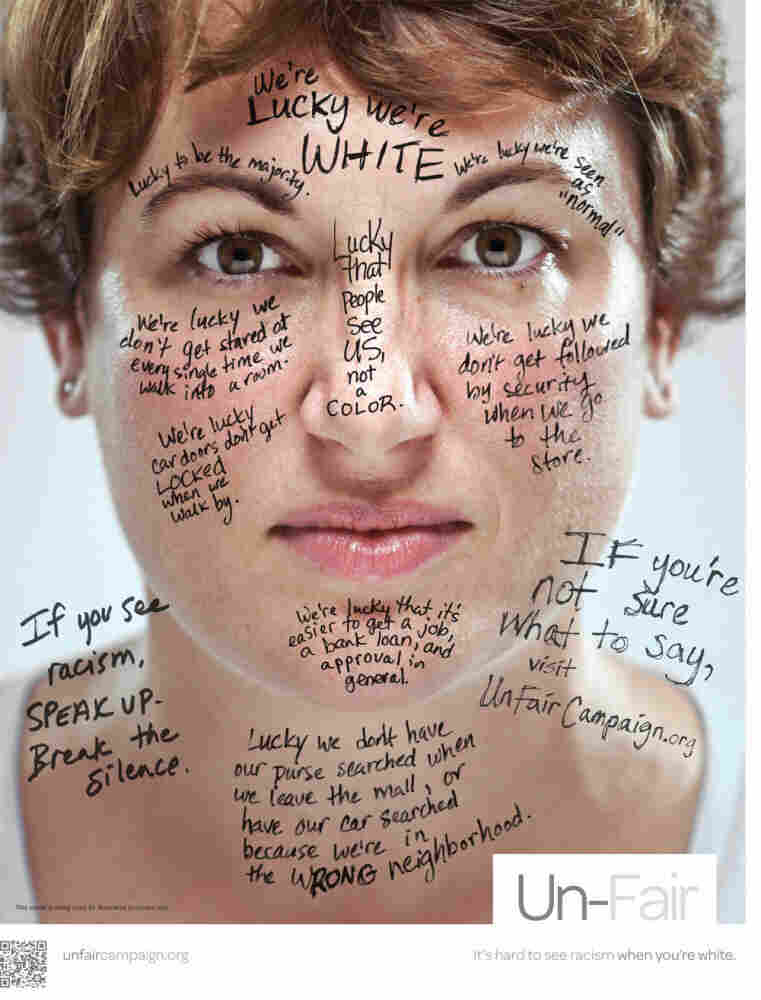 We're
Lucky we're
WHITE
Lucky to be the majority.
We're lucky we're seen
as
"normal"
Lucky
that
People
See
US,
not
a
COLOR.
We're lucky we
don't get stared at
every single time we
walk into a room.
We're lucky we
don't get followed
by security
when we go
to the
store.
We're lucky
car doors don't get
LOCKED
when we
walk by.
We're lucky that it's
easier to get a job,
a bank loan, and
approval in
general.
If you see
racism,
SPEAK UP-
Break the
silence.
IF you're
not sure
What to say,
visit
UnFairCampaign.org
Lucky we don't have
our purse searched when
we leave the mall, or
have our car searched
because we're in
the WRONG neighborhood.
Un-Fair
unfaircampaign.org
It's hard to see racism when you're white.